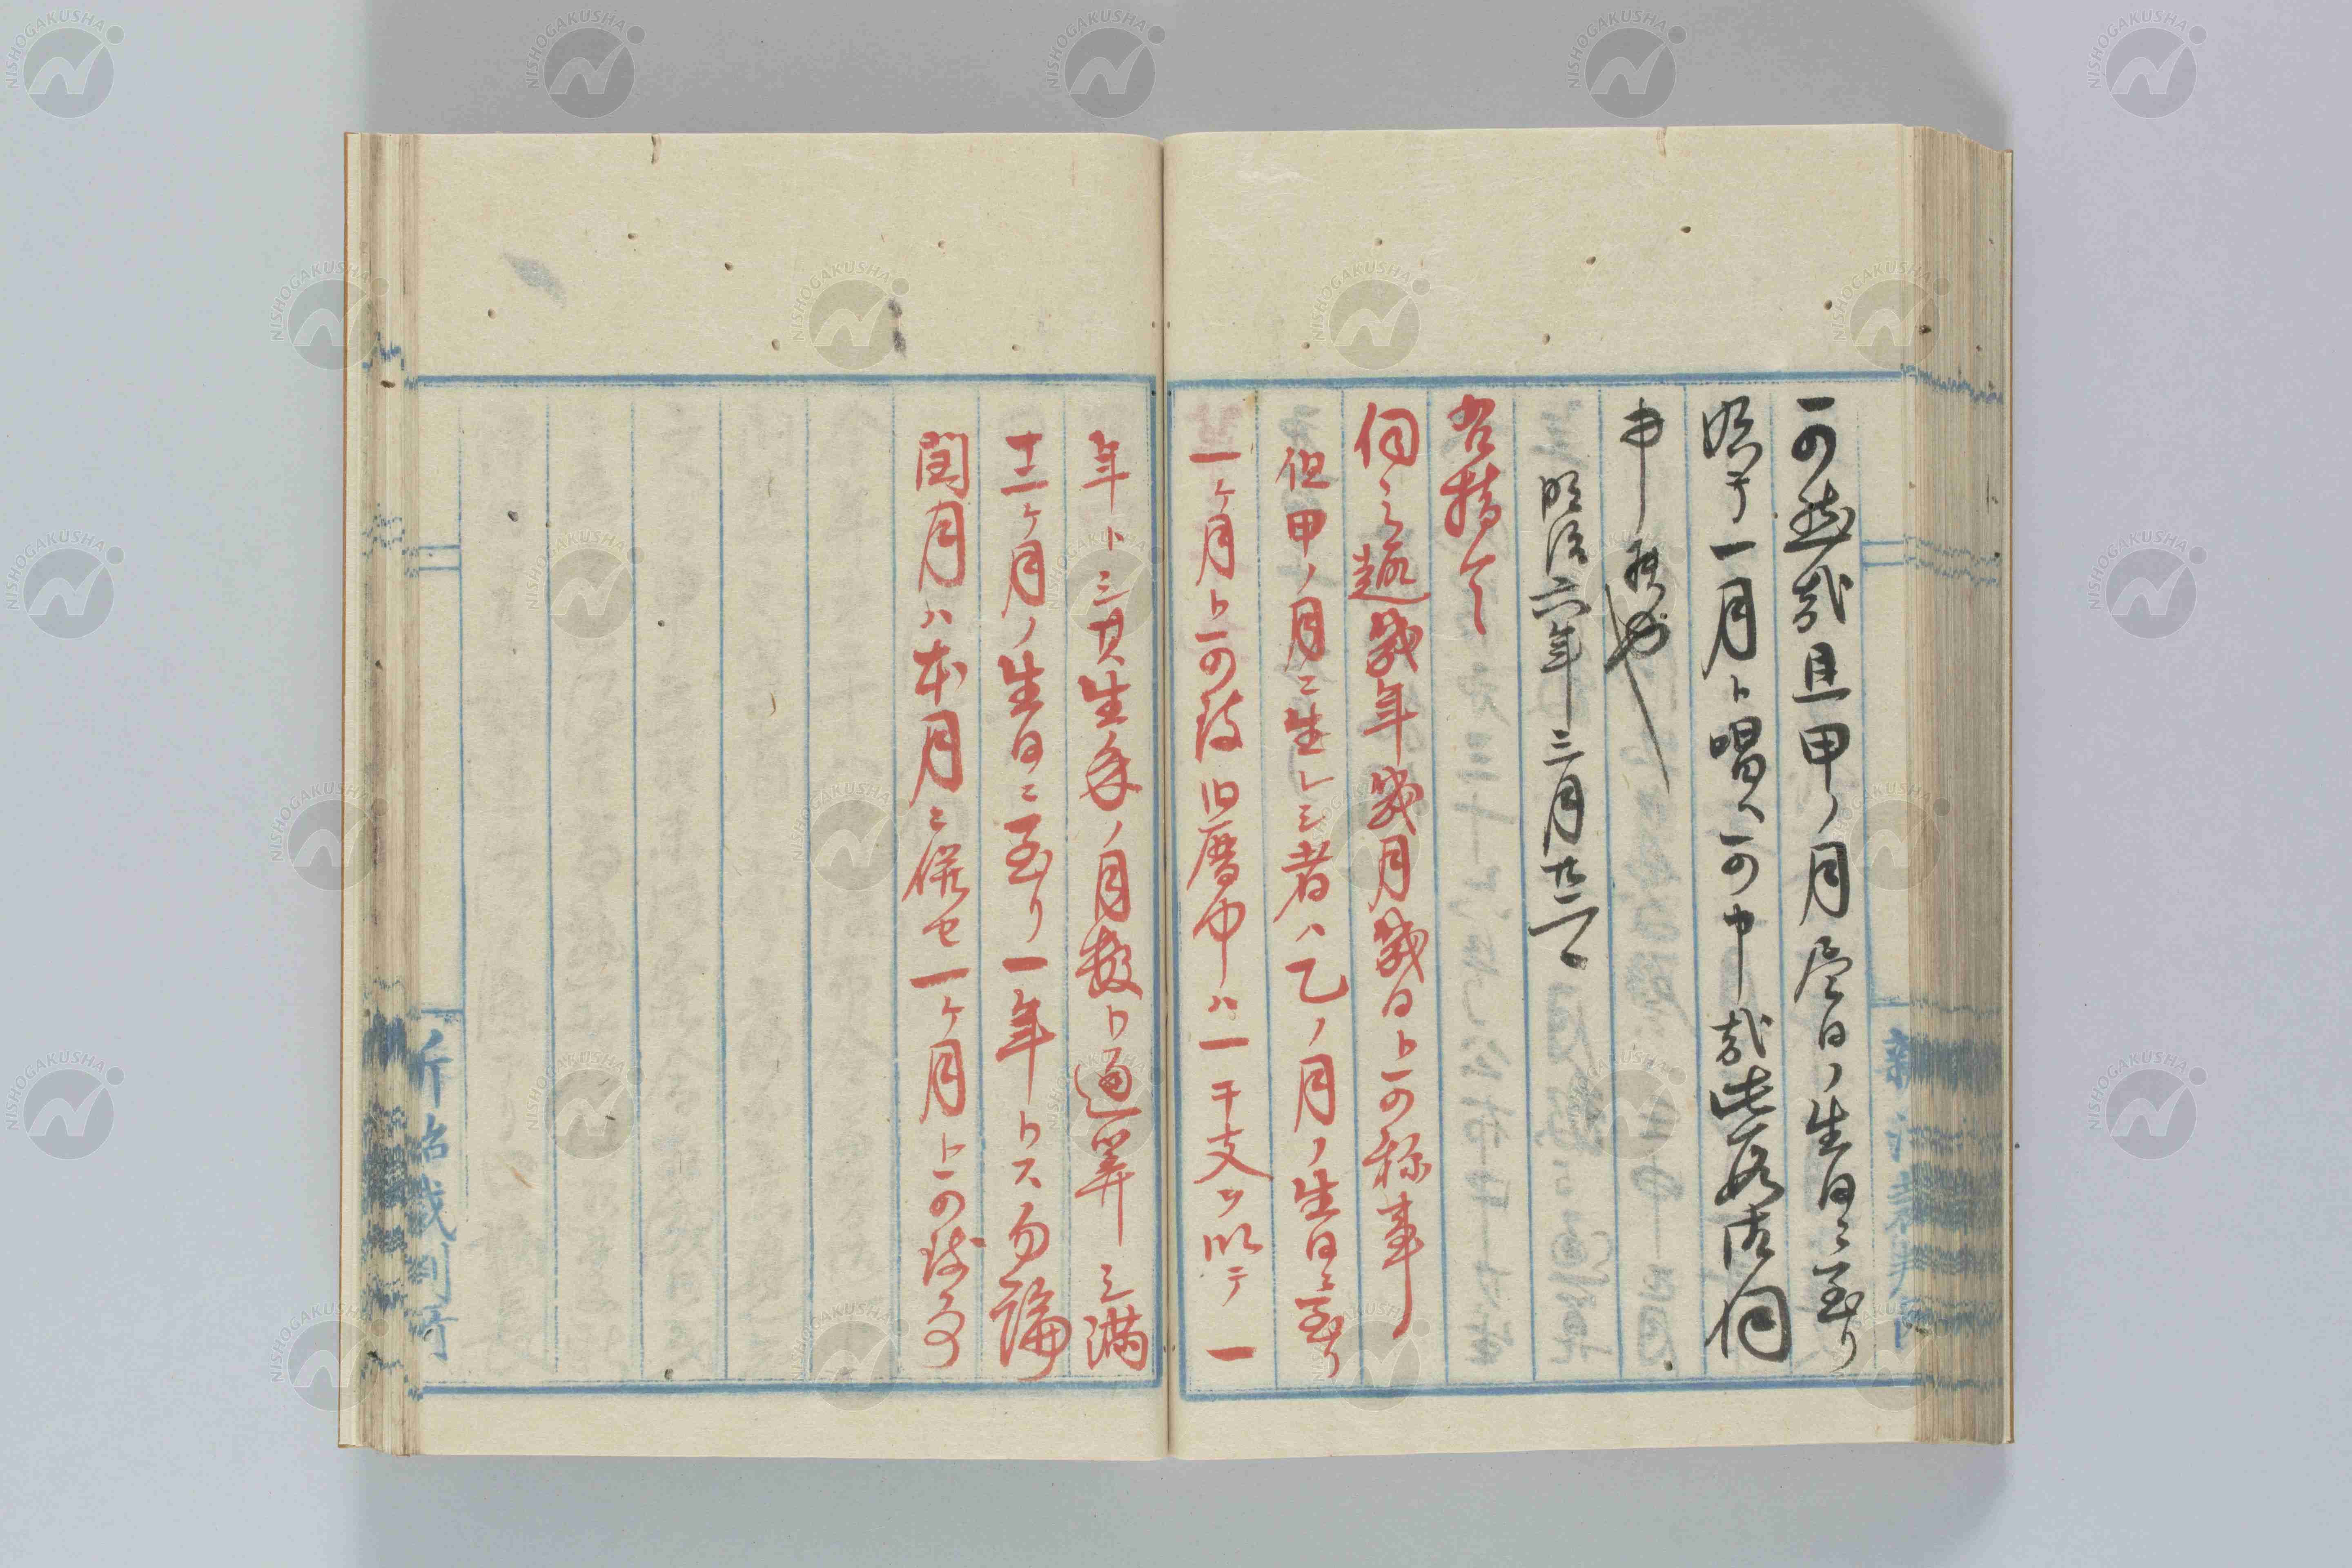 可然哉且甲ノ月尽日ノ生日ニ至リ
始テ一月ト唱ヘ可申哉此段相伺
申候也
明治六年三月廿二日
右指令
伺之趣幾年幾月幾日ト可称事
但甲ノ月ニ生レシ者ハ乙ノ月ノ生日ニ至リ
一ヶ月ト可致旧暦中ハ一干支ヲ以テ一
年トシ其生年ノ月数ト通算シ満
十二ヶ月ノ生日ニ至リ一年トス勿論
閏月ハ本月ニ併セ一ヶ月ト可致事
新治裁判所
NISHOGAKUSHA